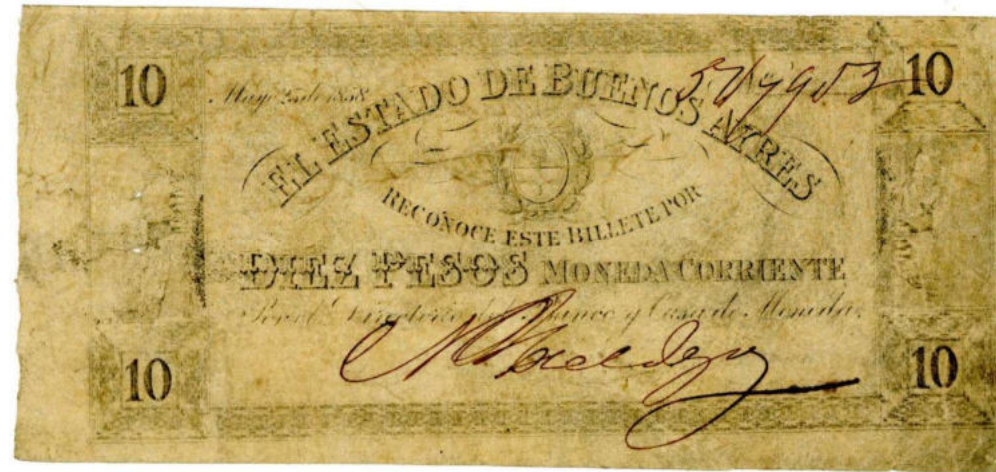 10 10
Mayo 25 de 1858
EL ESTADO DE BUENOS AYRES
RECONOCE ESTE BILLETE POR
DIEZ PESOS MONEDA CORRIENTE
Por el Directorio del Banco y Casa de Moneda
10 10